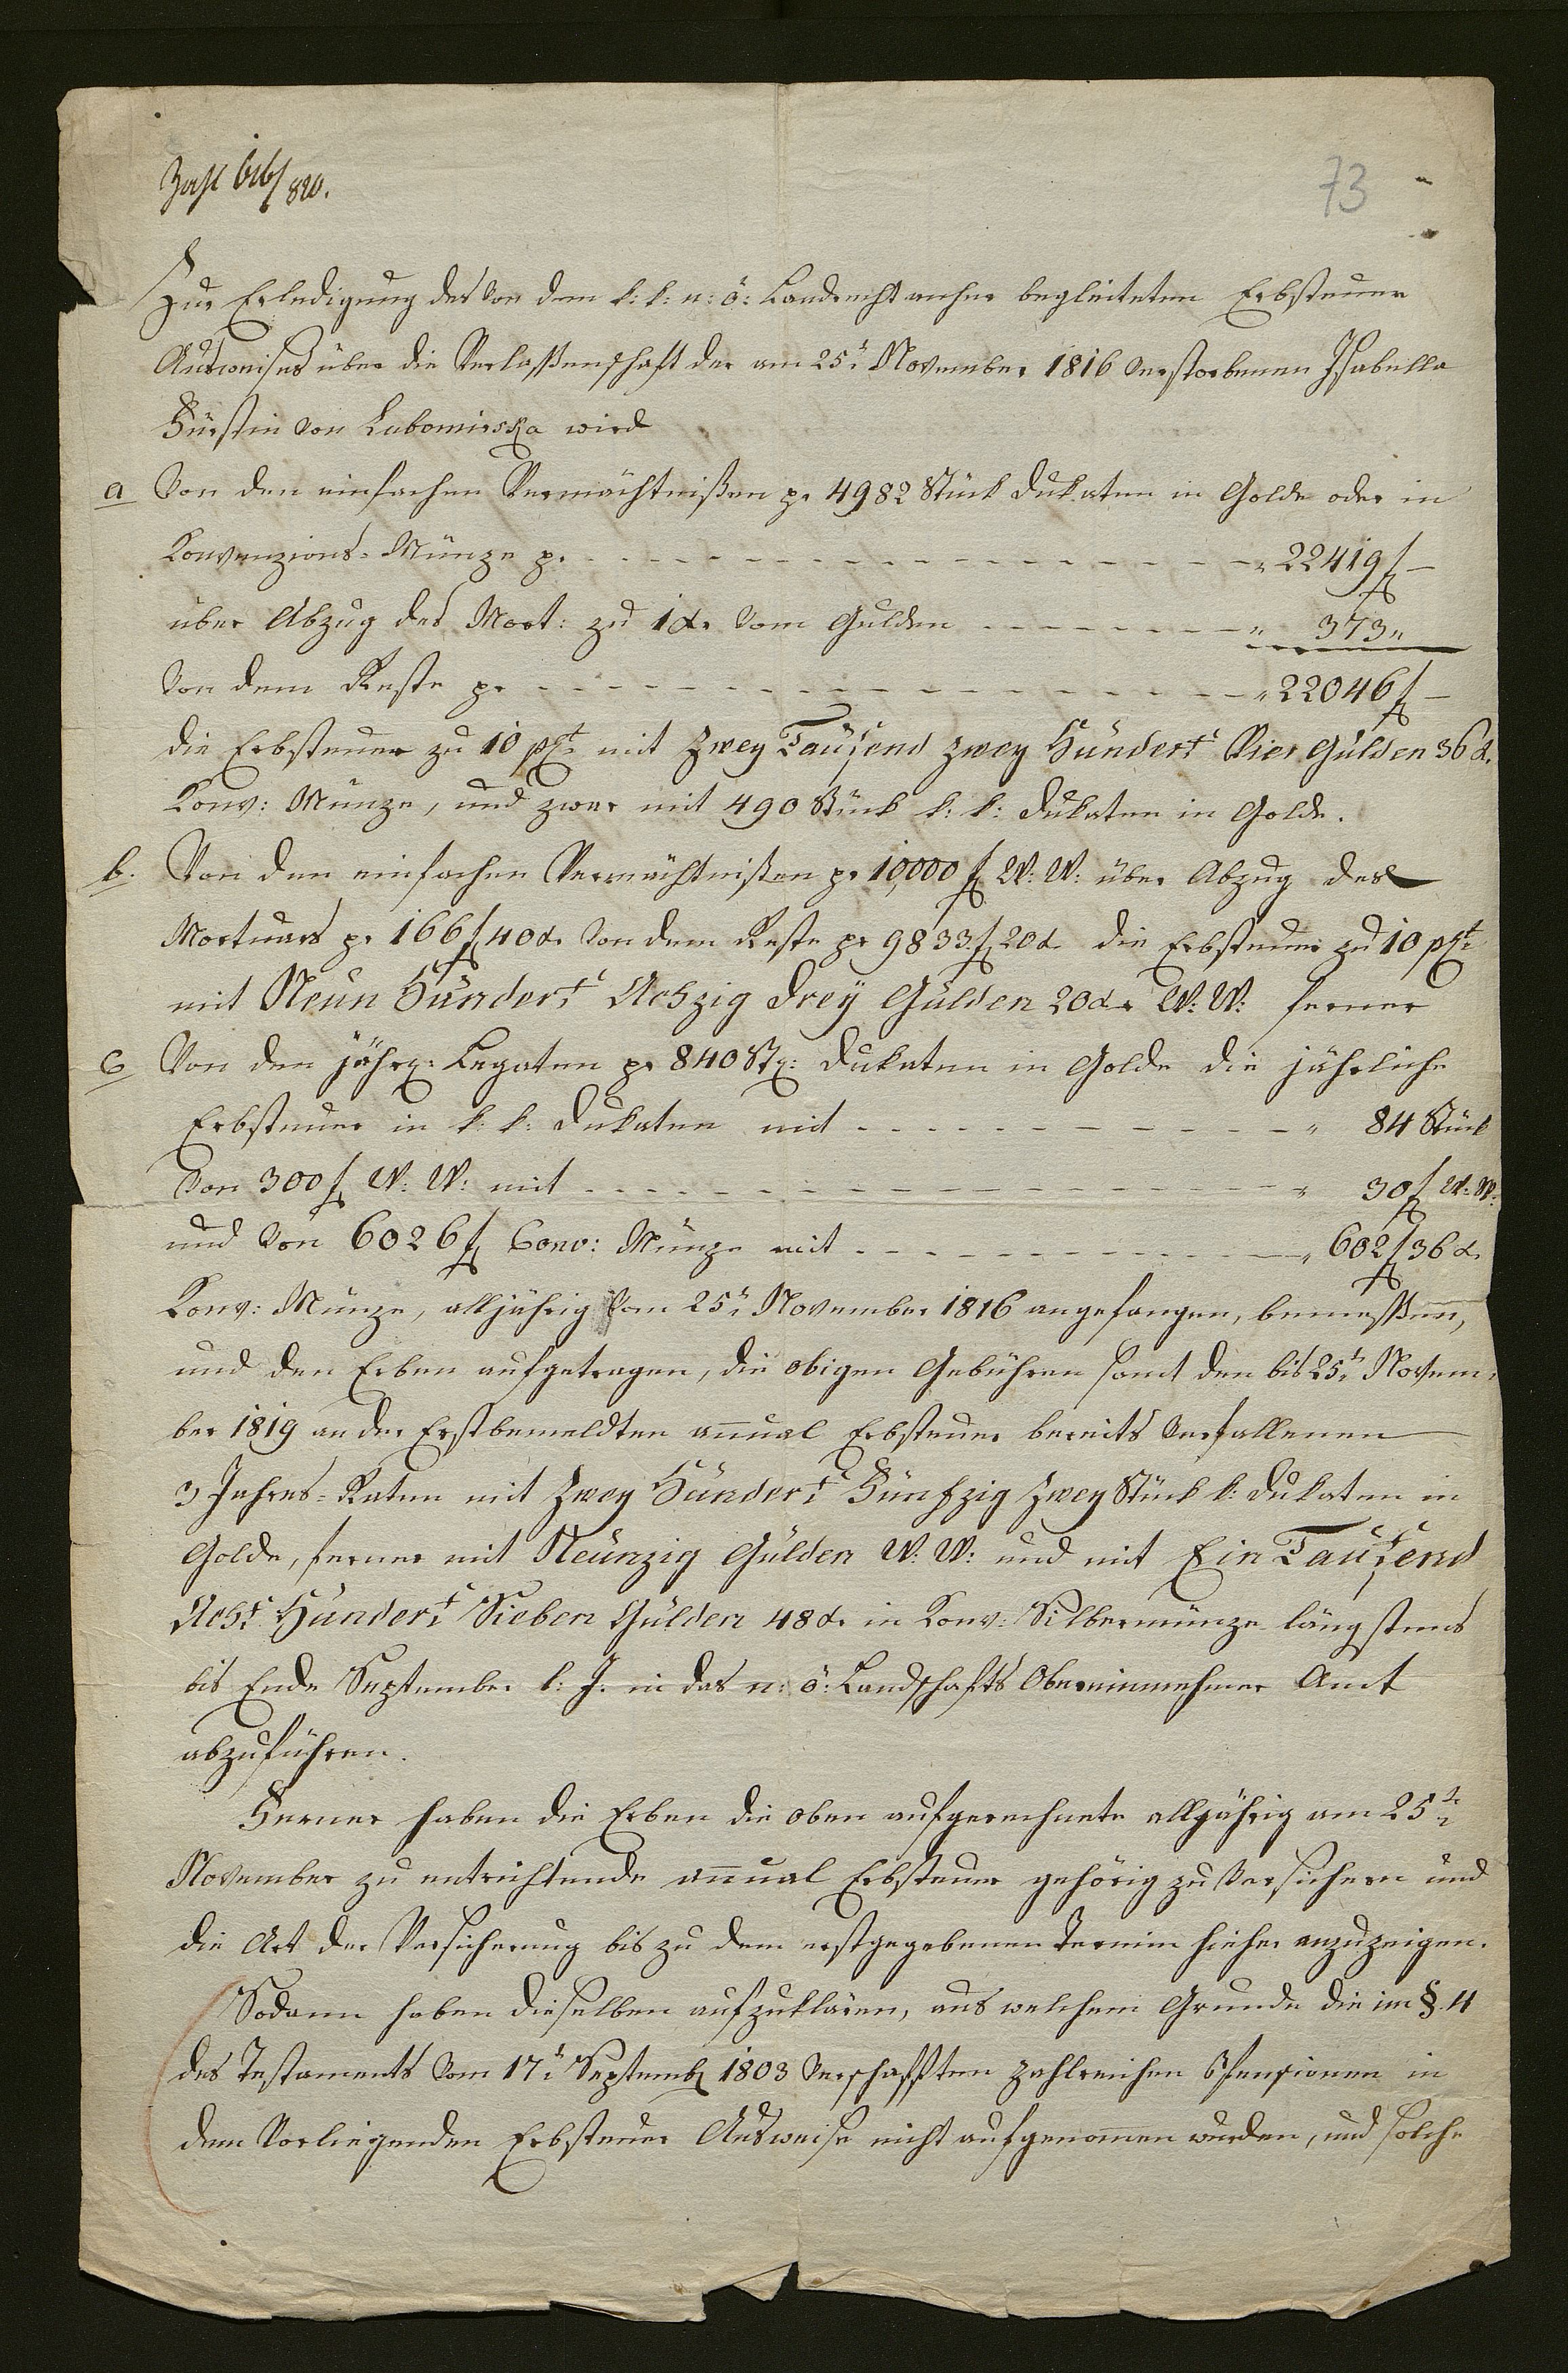 Zahl 616/820.
73
Zur Erledigung des von dem k: k: n: ö: Landrecht anher begleiteten Erbsteuer
Ausweises über die Verlaßenschaft der am 25t November 1816 verstorbenen Isabella
Fürstin von Lubomirska wird
a Von den einfachen Vermächtnißen pr 4982 Stück Dukaten in Golde oder in
Konvenzions-Münze pr - - - " 22419 f –
über Abzug des Mort: zu 1 xr vom Gulden - - - " 373 "
Von dem Reste pr - - - " 22046 f –
die Erbsteuer zu 10 pCt mit Zwey Tausend zwey Hundert Vier Gulden 36 xr
Konv: Münze, und zwar mit 490 Stück k: k: Dukaten in Golde.
b. Von den einfachen Vermächtnißen pr 10,000 f W: W: über Abzug des
Mortuars pr 166 f 40 xr von dem Reste pr 9833 f 20 xr die Erbsteuer zu 10 pCt
mit Neun Hundert Achzig Drey Gulden 20 xr W: W: ferner
c Von den jährl: Legaten pr 840 St: Dukaten in Golde die jährliche
Erbsteuer in k: k: Dukaten mit - - - " 84 Stück
Von 300 f W: W: mit - - - " 30 f W: W:
und von 6026 f Conv: Münze mit - - - " 602 f 36 xr
Konv: Münze, alljährig vom 25t November 1816 angefangen, bemeßen,
und den Erben aufgetragen, die obigen Gebühren samt den bis 25t Novem-
ber 1819 an der Erstbemeldten annual Erbsteuer bereits verfallenen
3 Jahres-Raten mit Zwey Hundert Fünfzig Zwey Stück k: Dukaten in
Golde, ferner mit Neunzig Gulden W: W: und mit Ein Tausend
Acht Hundert Sieben Gulden 48 xr in Konv: Silbermünze längstens
bis Ende September l: J: in das n: ö: Landschafts Obereinnehmer Amt
abzuführen.
Ferner haben die Erben die oben aufgerechnete alljährig am 25t
November zu entrichtende annual Erbsteuer gehörig zu versichern und
die Art der Versicherung bis zu dem erstgegebenen Termin hieher anzuzeigen.
Sodann haben dieselben aufzuklären, aus welchem Grunde die im §. 4
des Testaments vom 17t Septemb 1803 verschafften zahlreichen Pensionen in
dem vorliegenden Erbsteuer Ausweise nicht aufgenommen wurden, und solche